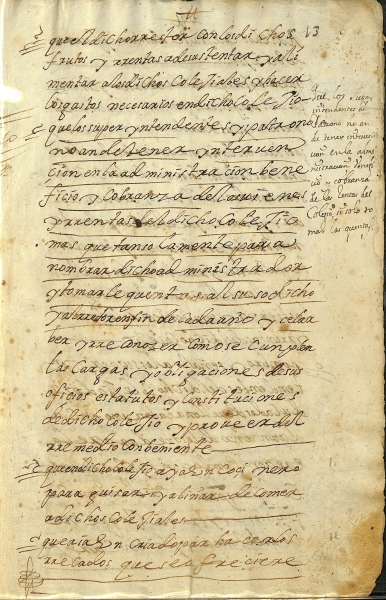 13
que el dicho rretor con los dichos
frutos y rrentas a de sustentar y ali
mentar a los dichos colegiales y hacer
los gastos necesarios en dicho colegio
que los superyntendentes y patronos
no an de tener yntervu
cion en la administracion bene
ficios y cobranza de los vienes
y rrentas del dicho colegio
mas que tan solamente para
nombrar dicho administrador
y tomarle quentas al susodicho
y a el rretor en fin de cada año y
ber y rreconozer como se cunplen
las cargas y obligaciones de sus
oficios estatutos y constituciones
de dicho colegio y proveer del
rremedio conbeniente
que en dicho colegio aya un cocinero
para guisar y aliñar de comer
a dichos colegiales
que aia un criado para hacer los
rrecados que se ofreciere
que los supe
intendentes y
patrono no an
de tener interven
cion en la admi
nistracion benefi
cio y cobranza
de las rentas del
Colegio, si solo to
mar las quentas